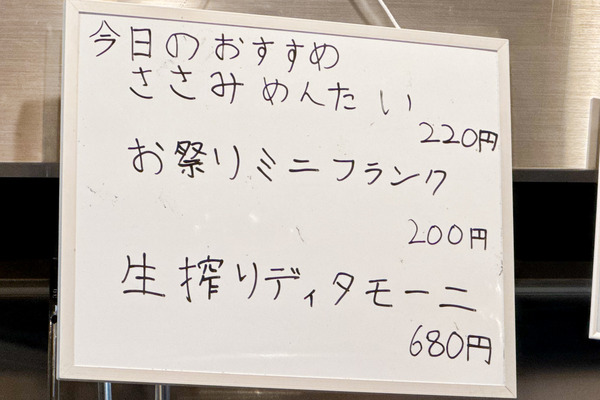 今日のおすすめ
ささみめんたい
220円
お祭りミニフランク
200円
生搾りディタモーニ
680円